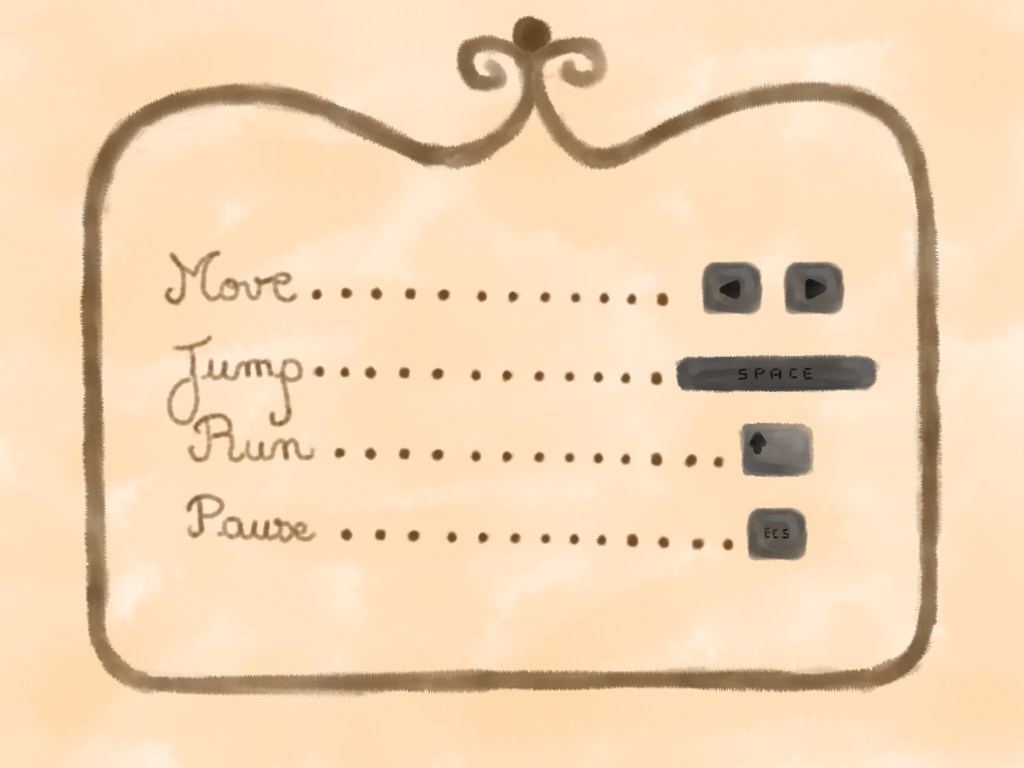 Move
Jump SPACE
Run
Pause ECS